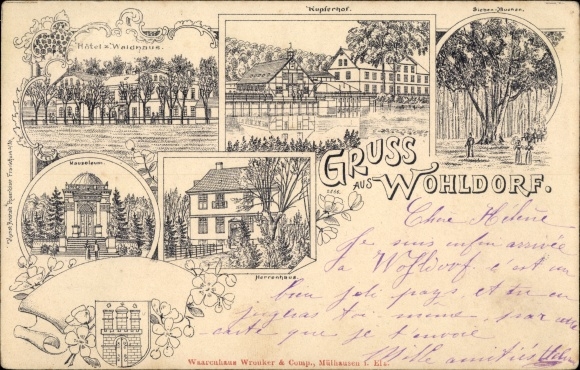 Kupferhof.
Sieben-Buchen.
Hôtel z. Waldhaus.
Mausoleum.
Herrenhaus.
GRUSS
AUS WOHLDORF.
Chère Hélène
Je suis enfin arrivée
a Wohldorf c'est un
bien joli pays, et tu en
jugeras toi même, par
carte que je t'envoie
Mille amitiés
Waarenhaus Wronker & Comp., Mülhausen i. Els.